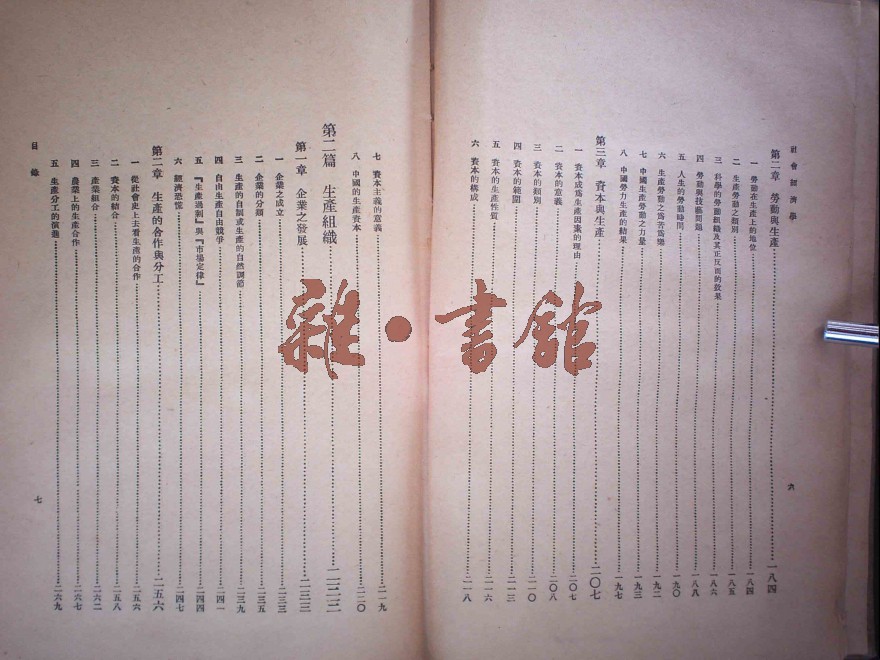 社會經濟學
第二章 勞動與生產 一八四
一 勞動在生產上的地位 一八四
二 生產勞動之類別 一八五
三 科學的勞動組織及其正反面的效果 一八六
四 勞動與技藝問題 一八八
五 人生的勞動時間 一九〇
六 生產勞動之為苦為樂 一九二
七 中國生產勞動之力量 一九三
八 中國勞力生產的結果 一九七
第三章 資本與生產 二〇七
一 資本成為生產因素的理由 二〇七
二 資本的意義 二〇八
三 資本的類別 二一〇
四 資本的範圍 二一三
五 資本的生產性質 二一六
六 資本的構成 二一八
六
七 資本主義的意義 二一九
八 中國的生產資本 二二〇
第二篇 生產組織 二三三
第一章 企業之發展 二三三
一 企業之成立 二三三
二 企業的分類 二三五
三 生產的自制或生產的自然調節 二三九
四 自由生產與自由競爭 二四一
五 『生產過剩』與『市場定律』 二四四
六 經濟恐慌 二四七
第二章 生產的合作與分工 二五六
一 從社會史上去看生產的合作 二五六
二 資本的結合 二五八
三 產業組合 二六二
四 農業上的生產合作 二六七
五 生產分工的演進 二六九
目錄
七
雜·書館